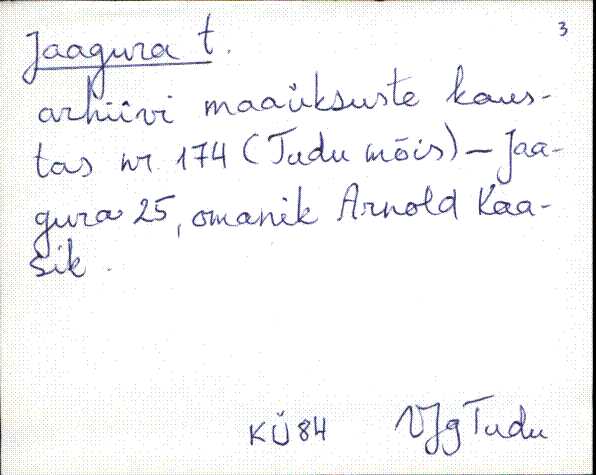 3
Jaagura t.
arhiivi maaüksuste kaus-
tas nr. 174 (Tudu mõis) – Jaa-
gura 25, omanik Arnold Kaa-
sik.
KÜ 84 VJg Tudu